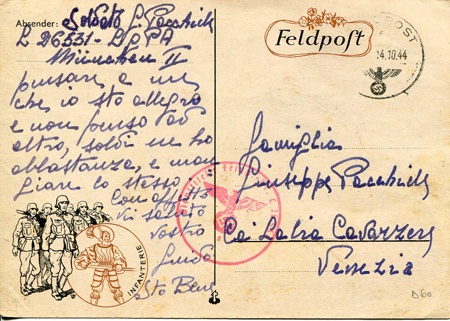 Absender: Soldato G.
L 26531 - LGPA
München II
pensare a me
che io sto allegro
e non penso ad
altro, soldi ne ho
abbastanza, e man
giare lo stesso.
Con affetto
Vi saluto
vostro
Guido
Sto Bene
INFANTERIE
Feldpost
POST
14.10.44
Famiglia
Giuseppe
Ca Labia Cavarzere
Venezia
D60